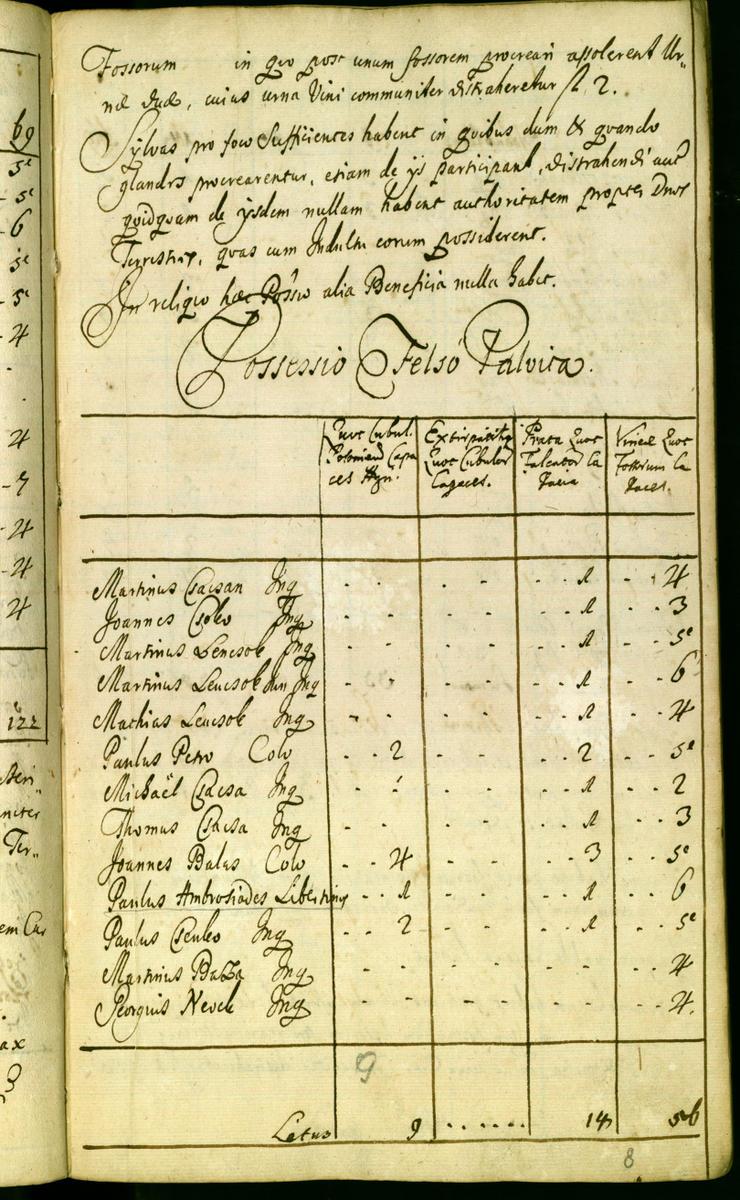 69
5
5
6
5
5
4
4
7
4
4
4
122
Fossorum in quo post unum fossorem procreari assolerent Ur„
næ duæ, cuius urna Vini communiter distraheretur fl. 2.
Sylvas pro foco Sufficientes habent in quibus dum & quando
glandes procrearentur, etiam de ijs participant, distrahendi aut
quidquam de ijsdem nullam habent authoritatem propter Dnos
Terrestres, quas cum Indultu eorum possiderent.
In reliquo hæc Possio alia Beneficia nulla habet.
Possessio Felsö Palvita.
Quot Cubul. Extirpatitiæ Prata Quot Vineæ Quot
Posonien Capa Quot Cubulor Falcator Ca Fossorum Ca
ces Hyn. Capaces. pacia paces.
Martinus Csacsan Inq - - - - - - 1 - - 4
Joannes Csoko Inq - - - - - - 1 - - 3
Martinus Lencsok Inq - - - - - - 1 - - 5
Martinus Lencsok Jun Inq - - - - - - 1 - - 6
Mathias Lencsok Inq - - - - - - 1 - - 4
Paulus Petro Colo - - 2 - - - - 2 - - 5
Michaël Csacsa Inq - - - - - - 1 - - 2
Thomas Csacsa Inq - - - - - - 1 - - 3
Joannes Balas Colo - - 4 - - - - 3 - - 5
Paulus Ambrosiades Libertinus - - 1 - - - - 1 - - 6
Paulus Csenko Inq - - 2 - - - - 1 - - 5
Martinus Bazza Inq - - - - - - - - 4
Georgius Nevek Inq - - - - - - - - 4.
9
Latus 9 ....... 14 56
8